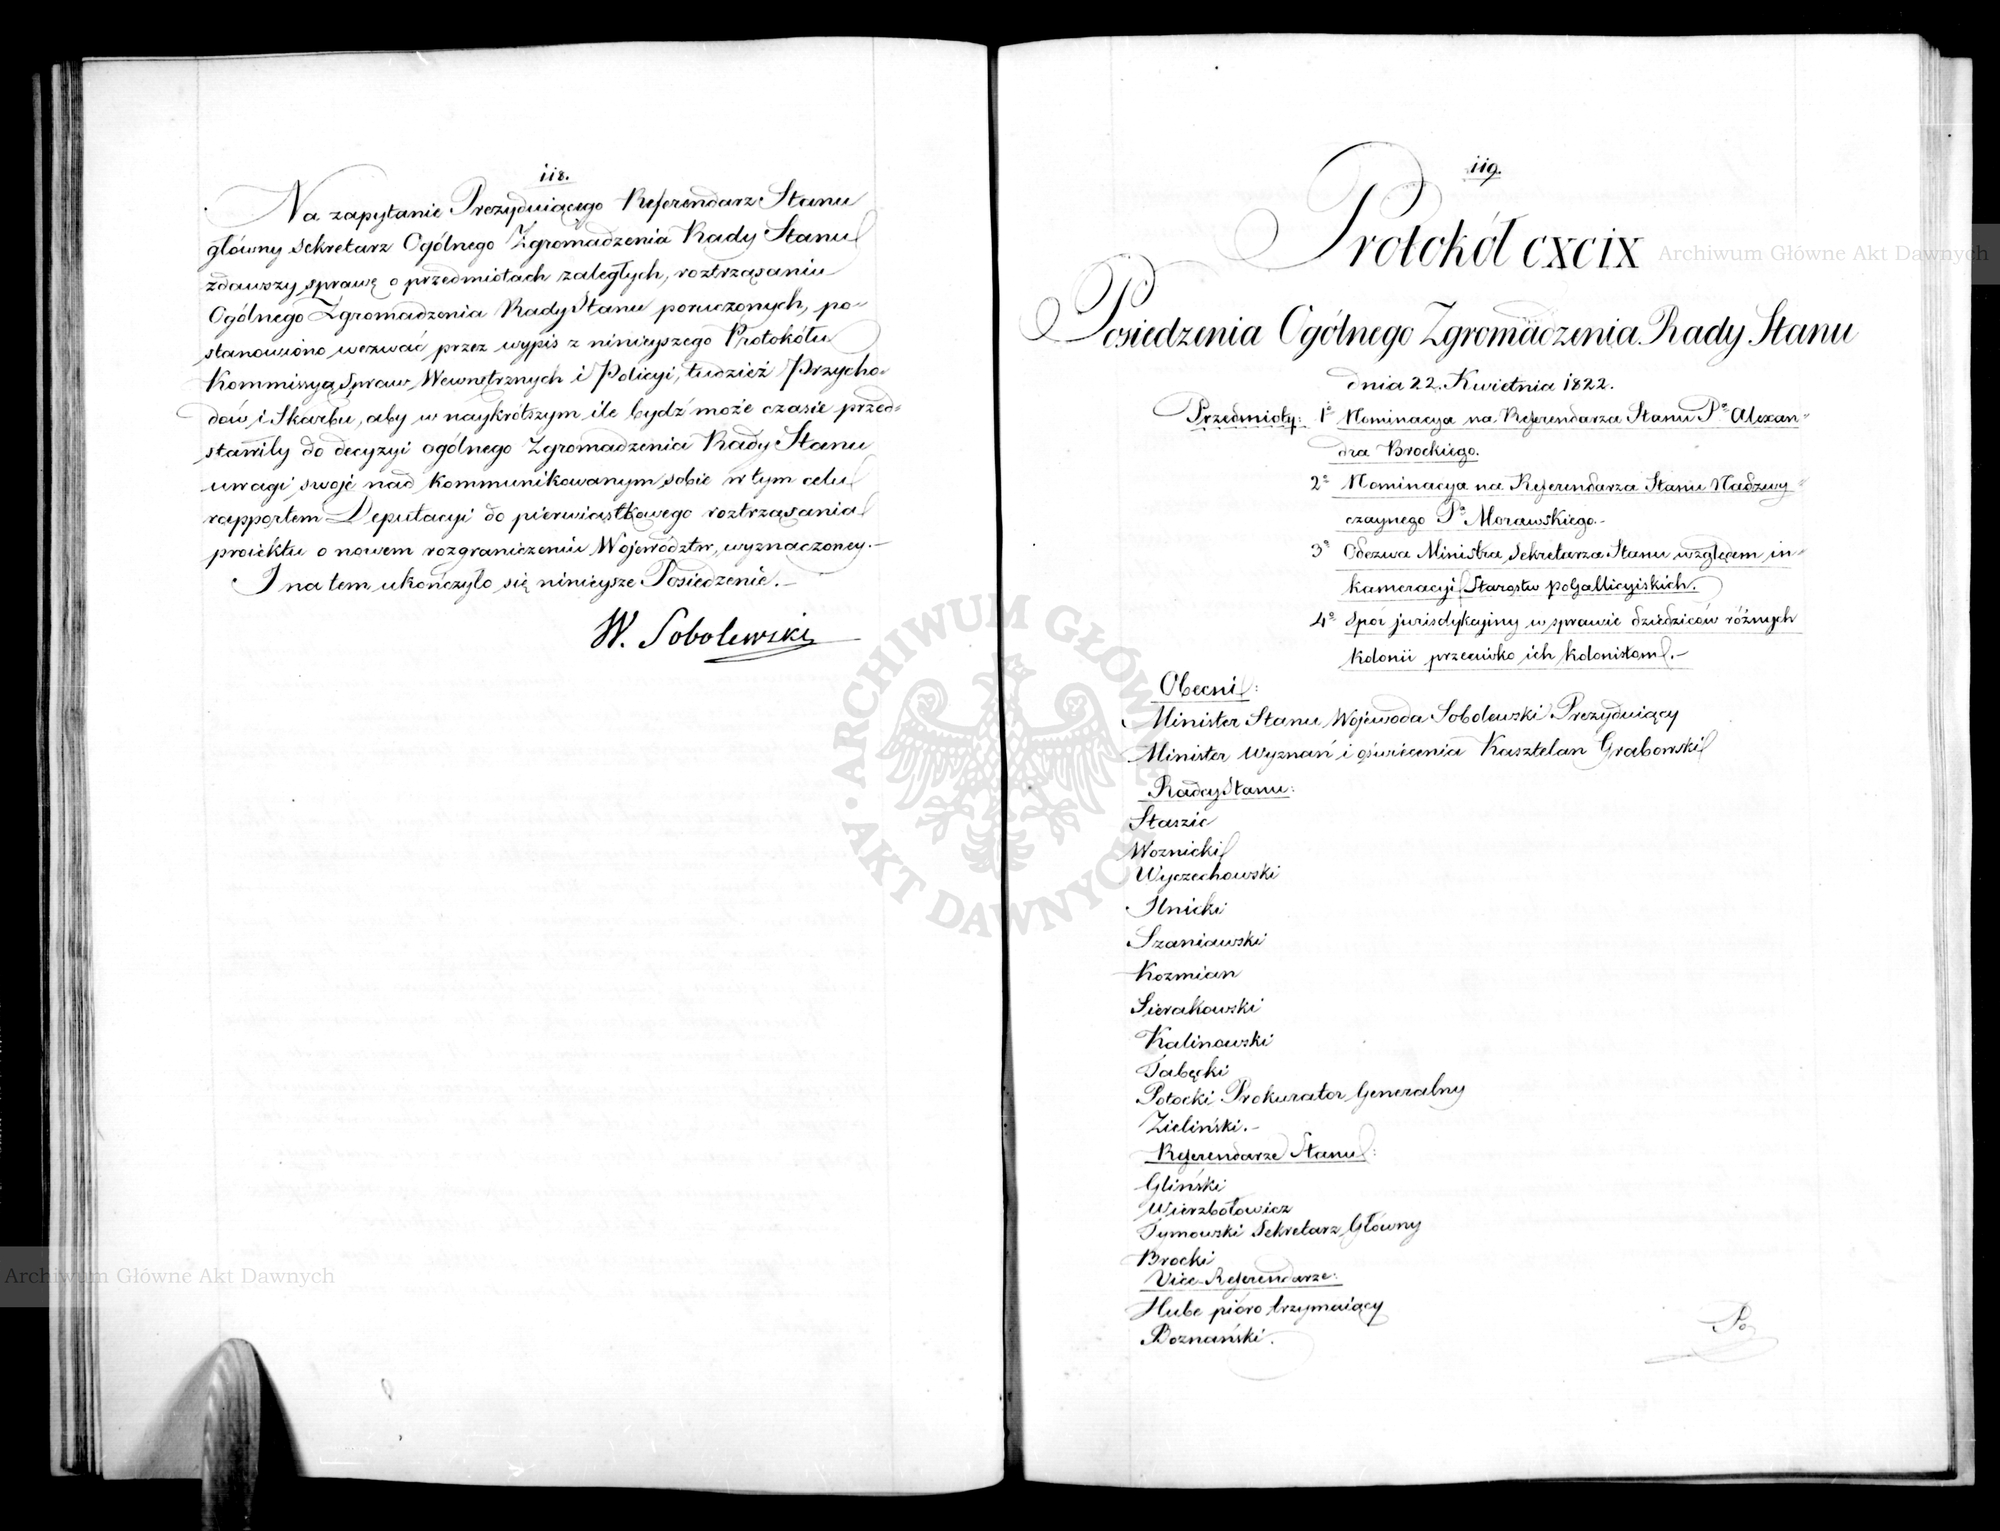 118.
Na zapytanie Prezyduiącego Referendarz Stanu
główny Sekretarz Ogólnego Zgromadzenia Rady Stanu
zdawszy sprawę o przedmiotach zaległych, roztrząsaniu
Ogólnego Zgromadzenia Rady Stanu poruczonych, po-
stanowiono wezwać przez wypis z ninieyszego Protokółu
Kommissyą Spraw Wewnętrznych i Policyi, tudzież Przycho-
dów i Skarbu, aby w naykrótszym ile bydź może czasie przed-
stawiły do decyzyi ogólnego Zgromadzenia Rady Stanu
uwagi swoje nad kommunikowanym sobie w tym celu
rapportem Deputacyi do pierwiastkowego roztrząsania
proiektu o nowem rozgraniczeniu Województw, wyznaczoney.-
I na tem ukończyło się ninieysze Posiedzenie.-
W. Sobolewski
119.
Protokół CXCIX
Posiedzenia Ogólnego Zgromadzenia Rady Stanu
dnia 22. Kwietnia 1822.
Przedmioty: 1o Nominacya na Referendarza Stanu Pa Alexan-
dra Brockiego.
2o Nominacya na Referendarza Stanu Nadzwy-
czaynego Pa Morawskiego.-
3o Odezwa Ministra Sekretarza Stanu względem in-
kameracyi Starostw poGallicyiskich.
4o Spór jurisdykcyiny w sprawie dziedziców różnych
kolonii przeciwko ich kolonistom.-
Obecni:
Minister Stanu Wojewoda Sobolewski Prezyduiący
Minister Wyznań i oświecenia Kasztelan Grabowski
Radcy Stanu:
Staszic
Woznicki
Wyczechowski
Ilnicki
Szaniawski
Kozmian
Sierakowski
Kalinowski
Tabęcki
Potocki Prokurator Generalny
Zieliński.-
Referendarze Stanu:
Gliński
Wierzbołowicz
Tymowski Sekretarz Główny
Brocki
Vice-Referendarze:
Hube pióro trzymaiący
Poznański.
Po
Archiwum Główne Akt Dawnych
ARCHIWUM GŁÓWNE AKT DAWNYCH
Archiwum Główne Akt Dawnych